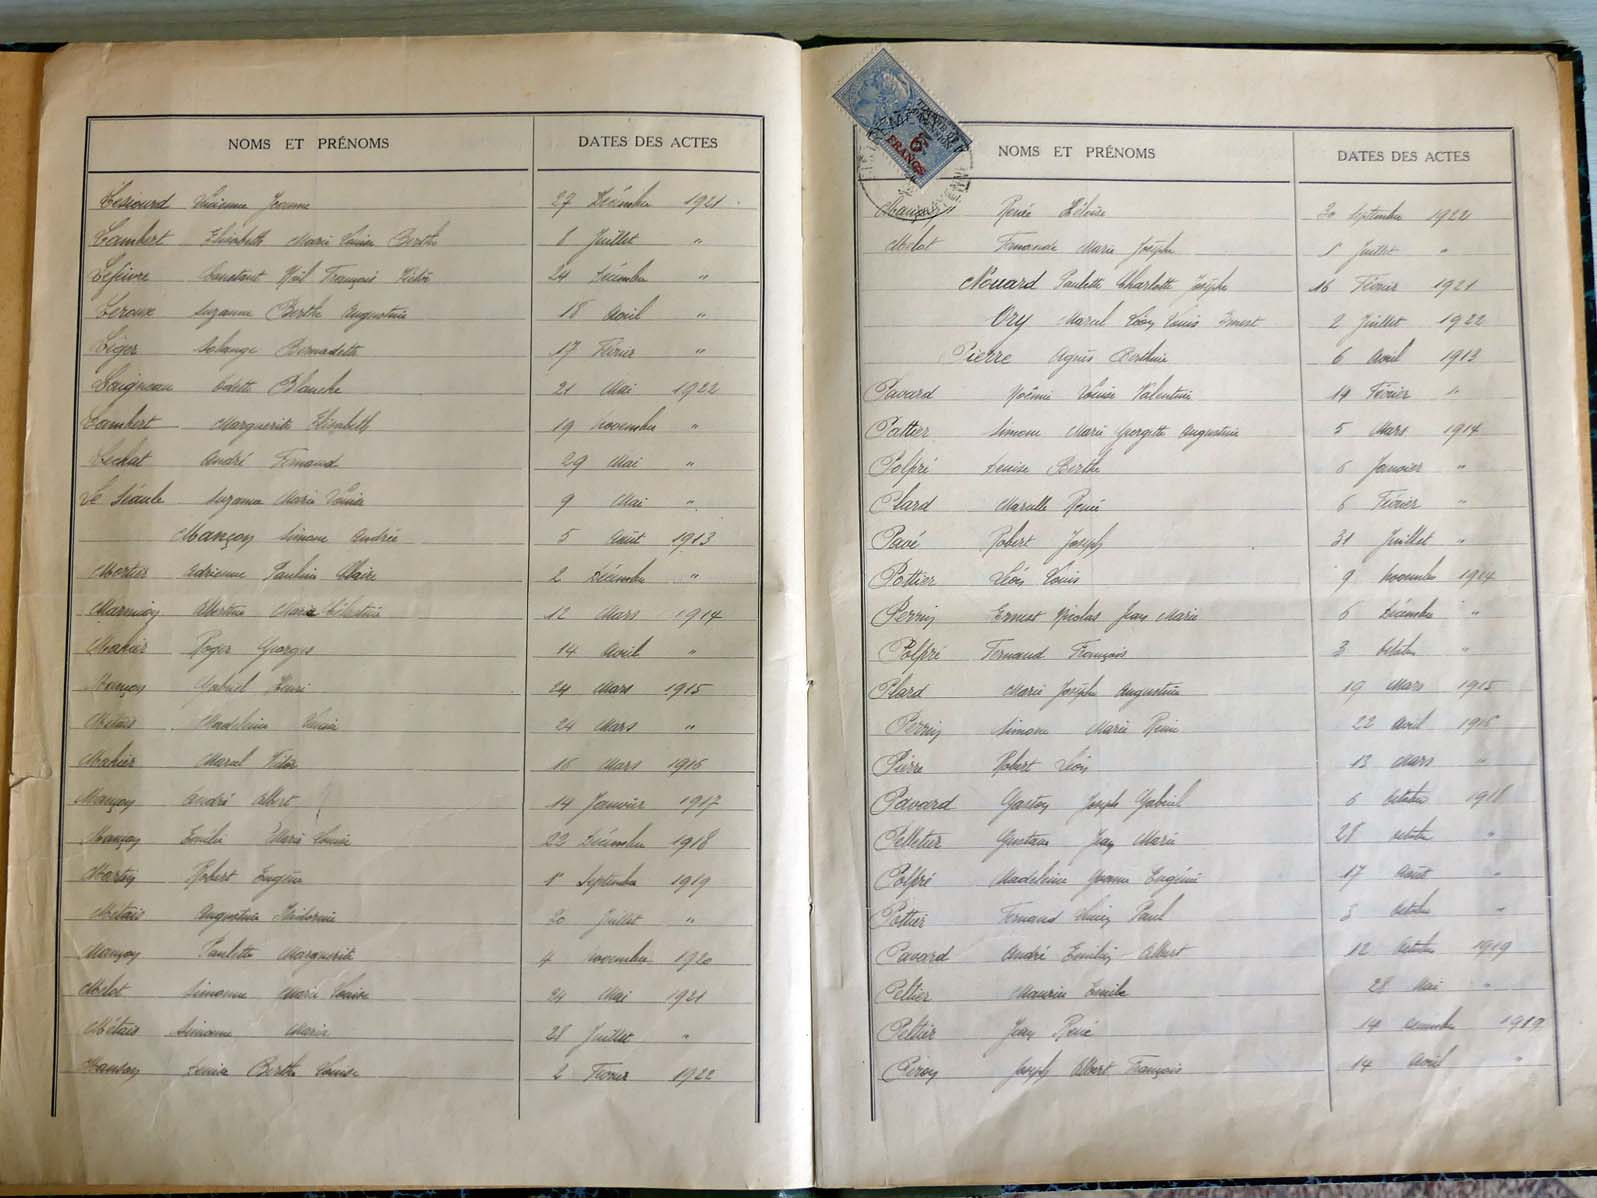 NOMS ET PRÉNOMS DATES DES ACTES
Lucienne Jeanne 27 Décembre 1921
Lambert Elisabeth Marie Louise Berthe 8 Juillet "
Lefèvre Constant Noël François Victor 24 Décembre "
Leroux Suzanne Berthe Augustine 18 Avril "
Léger Solange Bernadette 17 Février "
Loigneau Odette Blanche 21 Mai 1922
Lambert Marguerite Elisabeth 19 Novembre "
Lechat André Fernand 29 Mai "
Suzanne Marie Louise 9 Mai "
Mançon Simone Andrée 5 Août 1913
Adrienne Pauline Claire 2 Décembre "
Albertine Marie Célestine 12 Mars 1914
Mahier Roger Georges 14 Avril "
Mançon Gabriel Henri 24 Mars 1915
Métais Madeleine Louise 24 Mars "
Mahier Marcel Victor 16 Mars 1916
Mançon André Albert 14 Janvier 1917
Mançon Emélie Marie Louise 22 Décembre 1918
Martin Robert Eugène 1er Septembre 1919
Métais Augustine 20 Juillet "
Mançon Paulette Marguerite 4 Novembre 1920
Melot Simonne Marie Louise 24 Mai 1921
Métais Simonne Marie 28 Juillet "
Mançon Denise Berthe Louise 2 Février 1922
5 FRANCS
NOMS ET PRÉNOMS DATES DES ACTES
Mançon Renée Héloïse 30 Septembre 1922
Melot Fernande Marie Josèphe 8 Juillet "
Nouard Paulette Charlotte Josèphe 16 Février 1921
Ory Marcel Léon Louis Ernest 2 Juillet 1922
Pierre Agnès Berthine 6 Avril 1913
Pavard Noémie Louise Valentine 19 Février "
Pottier Simone Marie Georgette Augustine 5 Mars 1914
Polpré Denise Berthe 6 Janvier "
Plard Marcelle Renée 6 Février "
Pavé Robert Joseph 31 Juillet "
Pottier Léon Louis 9 Novembre 1914
Perrin Ernest Nicolas Jean Marie 6 Décembre "
Polpré Fernand François 3 Octobre "
Plard Marie Josèphe Augustine 19 Mars 1915
Perrin Simone Marie Renée 22 Avril 1916
Pierre Robert Léon 13 Mars "
Pavard Gaston Joseph Gabriel 6 Octobre 1918
Pelletier Gustave Jean Marie 28 Octobre "
Polpré Madeleine Yvonne Eugénie 17 Août "
Pottier Fernand Paul 3 Octobre "
Pavard André Emilien Albert 12 Octobre 1919
Peltier Maurice Emile 28 Mai "
Peltier Jean René 14 Décembre 1919
Joseph Albert François 14 Avril "